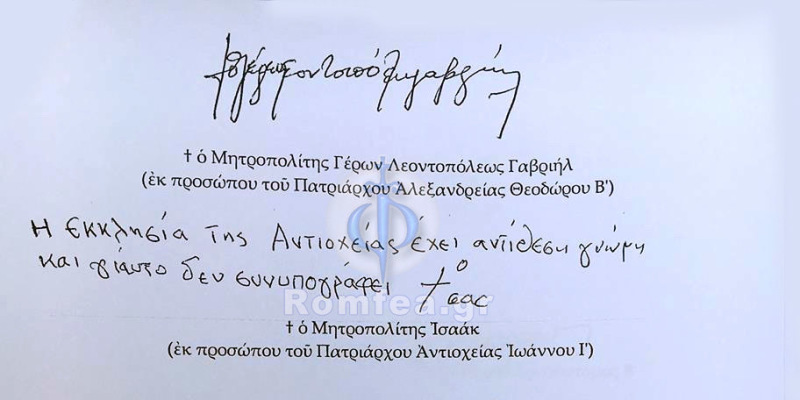 † ὁ Μητροπολίτης Γέρων Λεοντοπόλεως Γαβριήλ
(ἐκ προσώπου τοῦ Πατριάρχου Ἀλεξανδρείας Θεοδώρου Β')
Η Εκκλησία της Αντιοχείας έχει αντίθεση γνώμη
και γιαυτο δεν συνυπογράφει † ο
Ισαάκ
Romfea.gr
† ὁ Μητροπολίτης Ἰσαάκ
(ἐκ προσώπου τοῦ Πατριάρχου Ἀντιοχείας Ἰωάννου Ι')